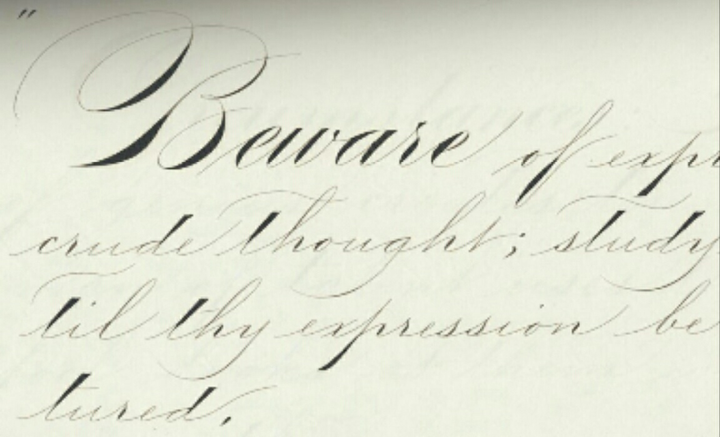 " Beware of expr
crude thought; study
til thy expression be
tured.